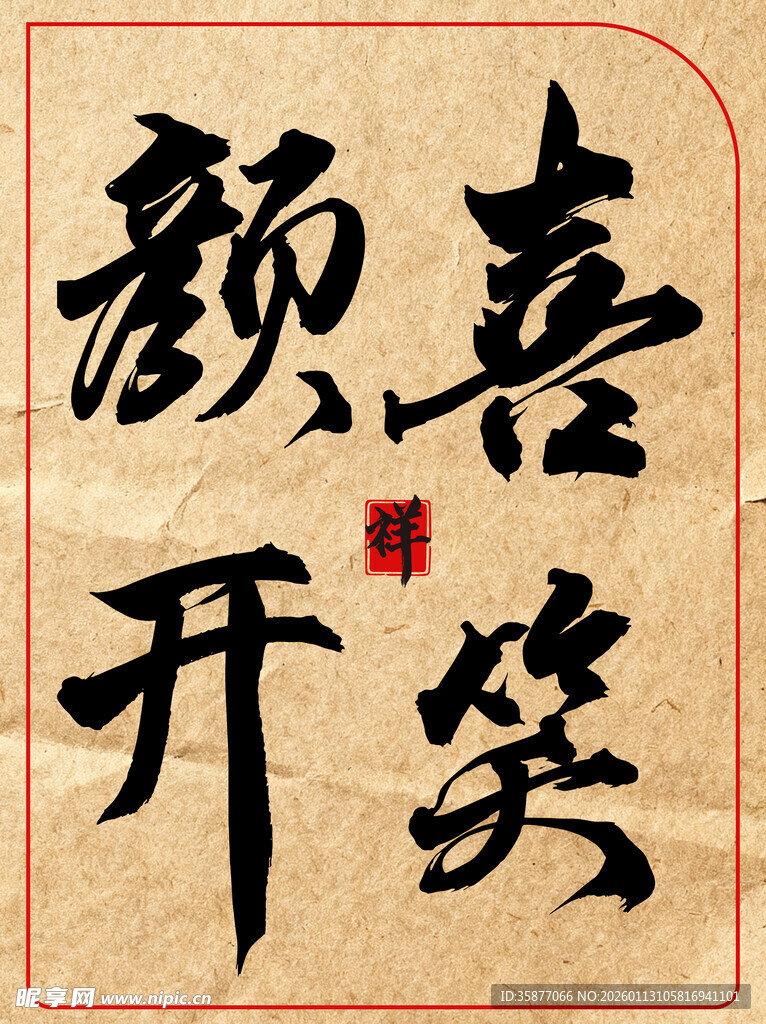 喜笑
颜开
祥
昵享网 www.nipic.cn
ID:35877066 NO:20260113105816941101